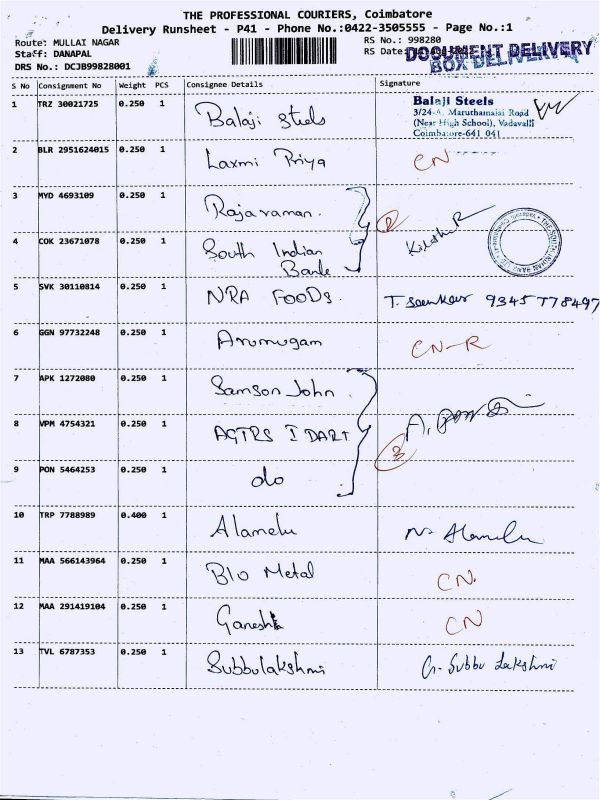 THE PROFESSIONAL COURIERS, Coimbatore
Delivery Runsheet - P41 - Phone No.:0422-3505555 - Page No.:1
Route: MULLAI NAGAR RS No.: 998280
Staff: DANAPAL RS Date:
DOCUMENT DELIVERY
BOX DELIVERY
DRS No.: DCJB99828001
S No Consignment No Weight PCS Consignee Details Signature
1 TRZ 30021725 0.250 1 Balaji Steels
Balaji Steels
3/24-A, Maruthamalai Road
(Near High School), Vadavalli
Coimbatore-641 041
2 BLR 2951624015 0.250 1 Laxmi Priya CN
3 MYD 4693109 0.250 1 Rajaraman.
4 COK 23671078 0.250 1 South Indian
Bank
THE SOUTH INDIAN BANK LTD
5 SVK 30110814 0.250 1 NRA FOODS. T. Sankar 9345778497
6 GGN 97732248 0.250 1 Arumugam CN-R
7 APK 1272080 0.250 1 Samson John
8 VPM 4754321 0.250 1 AGTRS I DART
3
9 PON 5464253 0.250 1 do
10 TRP 7788989 0.400 1 Alamelu N. Alamelu
11 MAA 566143964 0.250 1 Bio Metal CN.
12 MAA 291419104 0.250 1 Ganesh CN
13 TVL 6787353 0.250 1 Subbulakshmi G. Subbu Lakshmi